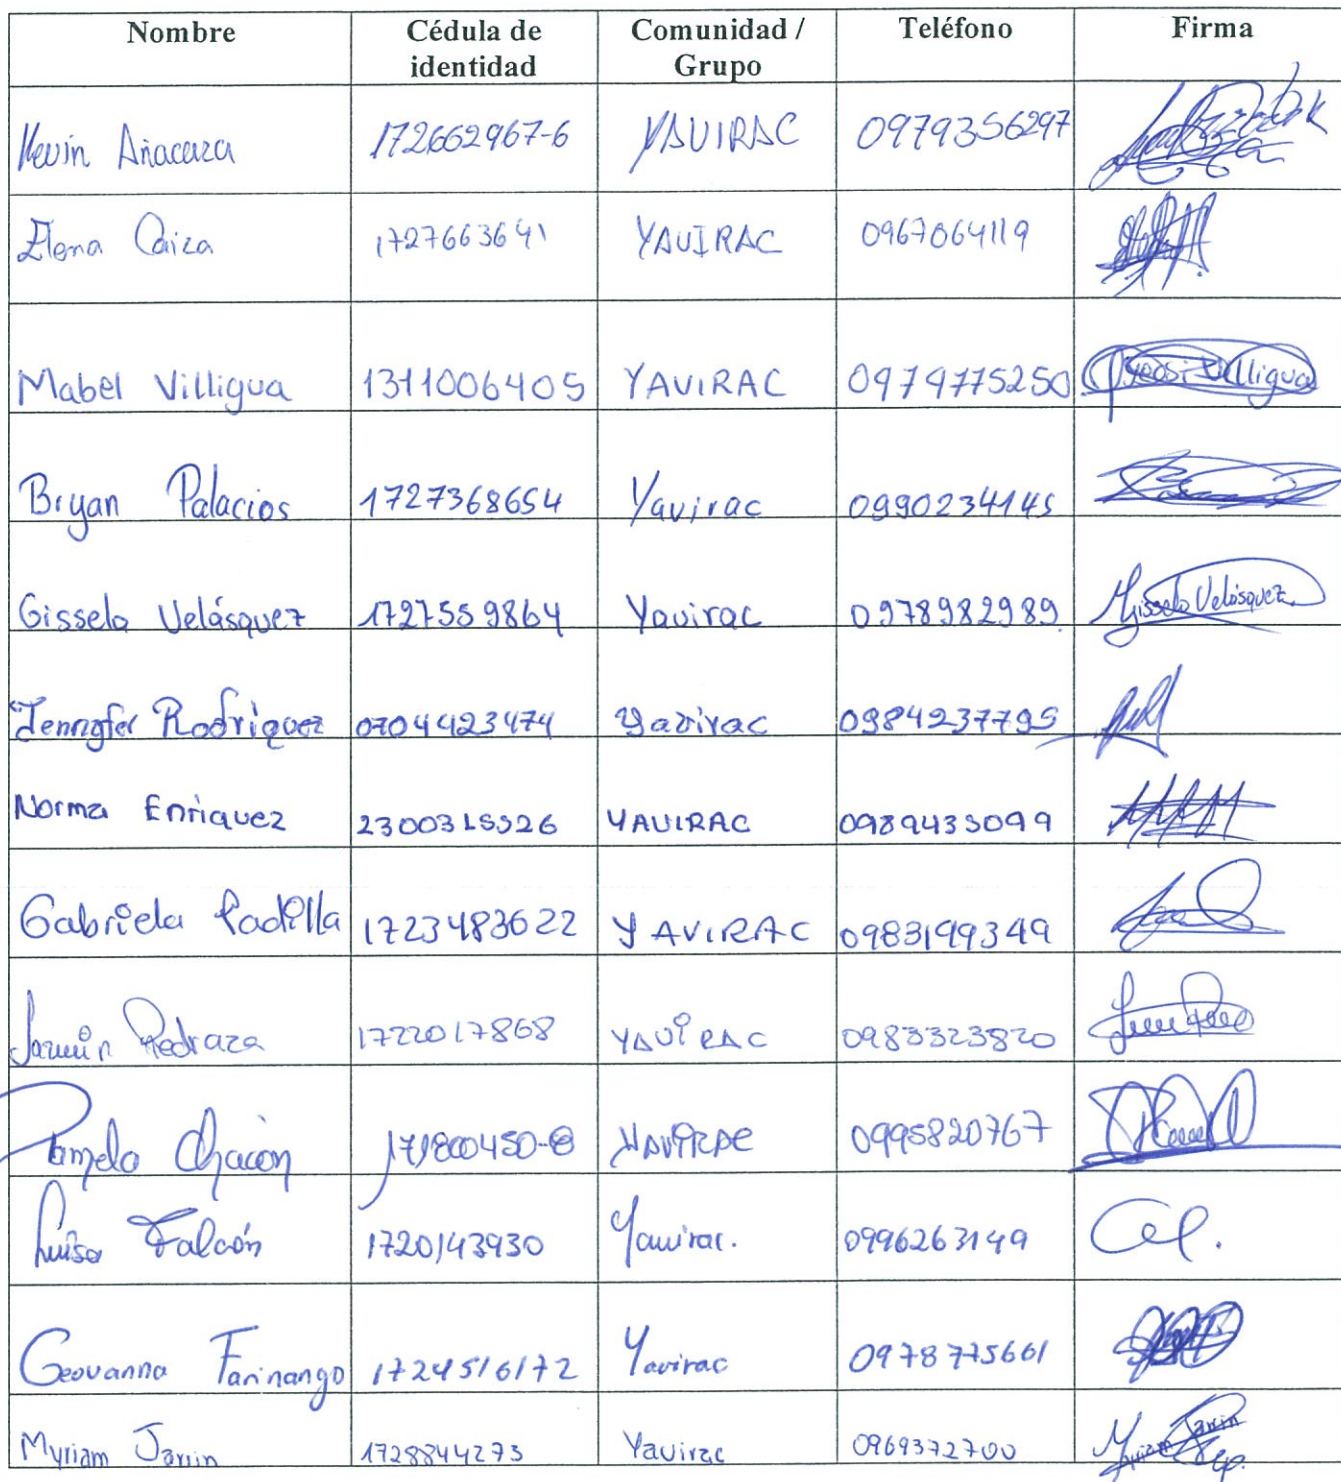 Nombre Cédula de identidad Comunidad / Grupo Teléfono Firma
Kevin Añacaza 172662967-6 YAVIRAC 0979356297
Elena Caiza 1727663641 YAVIRAC 0967064119
Mabel Villigua 1311006405 YAVIRAC 0979775250 Villigua
Bryan Palacios 1727368654 Yavirac 0990234145
Gissela Velásquez 1727559864 Yavirac 0978982989 Gissela Velásquez
Jennyfer Rodriguez 0704423474 Yavirac 0984237795
Norma Enriquez 2300315526 YAVIRAC 0989435099
Gabriela Padilla 1723483622 YAVIRAC 0983199349
Jazmin Pedraza 1722017868 YAVIRAC 0983323820
Pamela Chacón YAVIRAC 0995820767
Luisa Falcón 1720143930 Yavirac. 0996263149
Geovanna Farinango 1724516172 Yavirac 0978775661
Myriam Jarrin 1728844273 Yavirac 0969372700 Myriam Jarrin